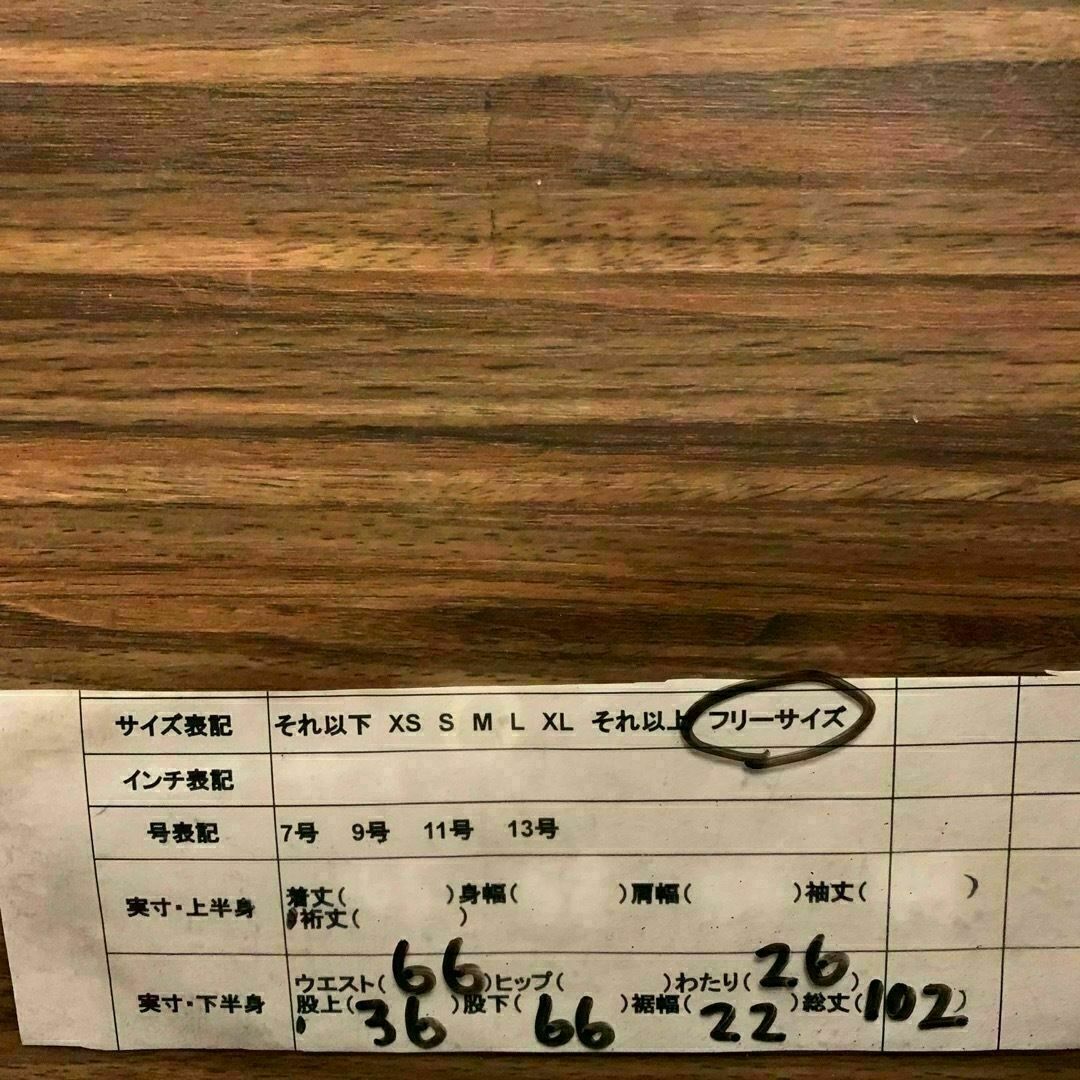 サイズ表記 それ以下 XS S M L XL それ以上 フリーサイズ
インチ表記
号表記 7号 9号 11号 13号
実寸・上半身 着丈( )身幅( )肩幅( )袖丈( )
裄丈( )
実寸・下半身 ウエスト(66)ヒップ( )わたり(26)
股上(36)股下(66)裾幅(22)総丈(102)